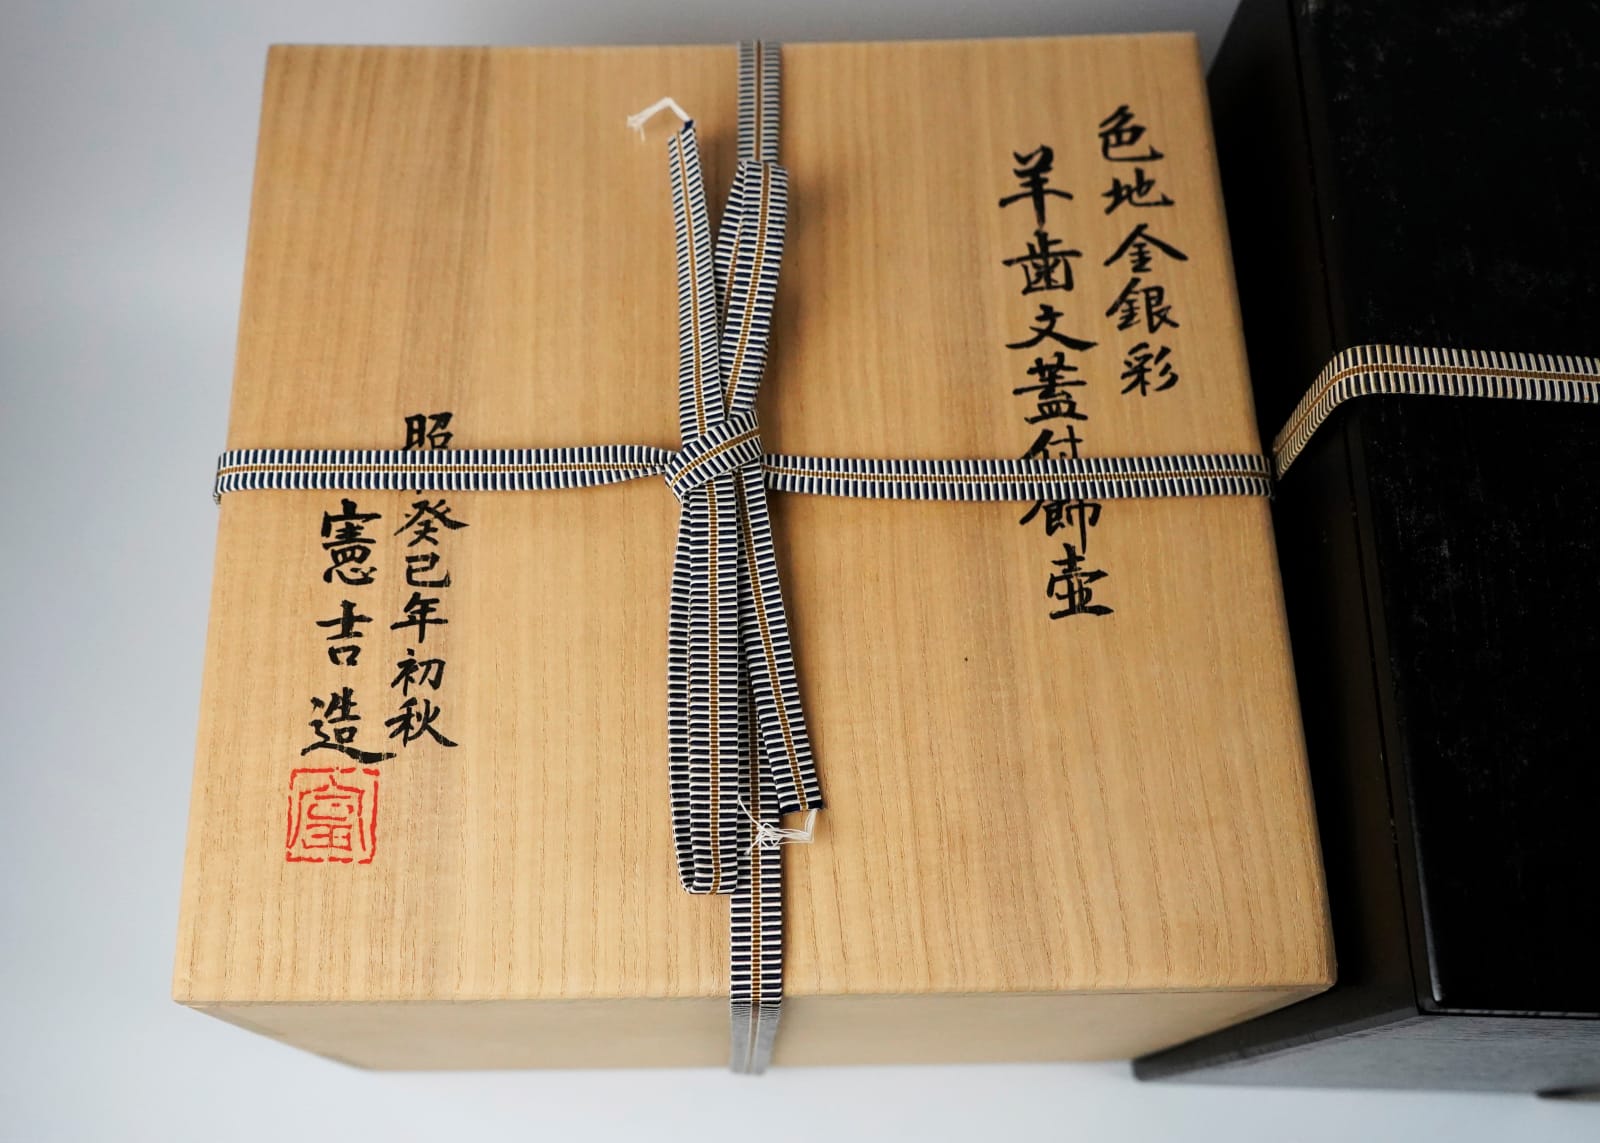 色地金銀彩
羊歯文蓋付飾壷
昭 癸巳年初秋
憲吉造
富